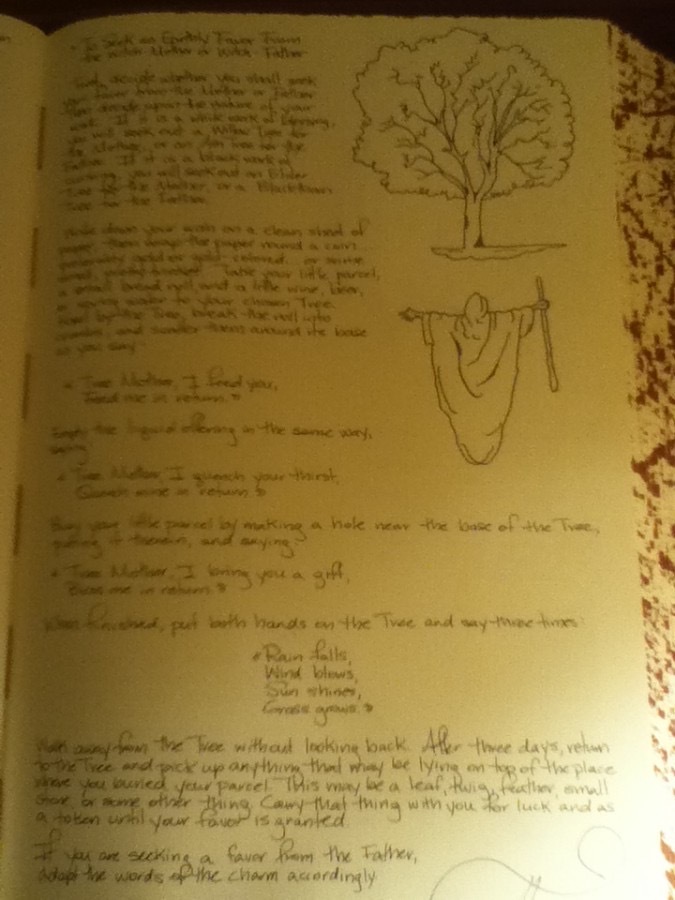 • To Seek an Earthly Favor From
the Witch Mother or Witch Father
First, decide whether you shall seek
your favor from the Mother or Father
Then decide upon the nature of your
work. If it is a white work of
you will seek out a Willow Tree for
the Mother, or an Tree for the
Father. If it is a black work of
you will seek out an Elder
tree for the Mother, or a Blackthorn
Tree for the Father.
Write down your wish on a clean sheet of
paper, then wrap the paper round a coin
preferably gold or gold-colored or some
small, Take your little parcel,
a small bread roll, and a little wine, beer,
or spring water to your chosen Tree.
by the Tree, break the roll into
crumbs, and scatter them around its base
as you say
"Tree Mother, I feed you,
Feed me in return."
Empty the liquid offering in the same way,
saying
"Tree Mother, I quench your thirst,
Quench mine in return."
Bury your little parcel by making a hole near the base of the Tree,
putting it therein, and saying:
"Tree Mother, I bring you a gift,
Bless me in return."
When finished, put both hands on the Tree and say three times:
"Rain falls,
Wind blows,
Sun shines,
Grass grows."
Walk away from the Tree without looking back. After three days, return
to the Tree and pick up anything that may be lying on top of the place
where you buried your parcel. This may be a leaf, twig, feather, small
stone, or some other thing. Carry that thing with you for luck and as
a token until your favor is granted.
If you are seeking a favor from the Father,
adapt the words of the charm accordingly